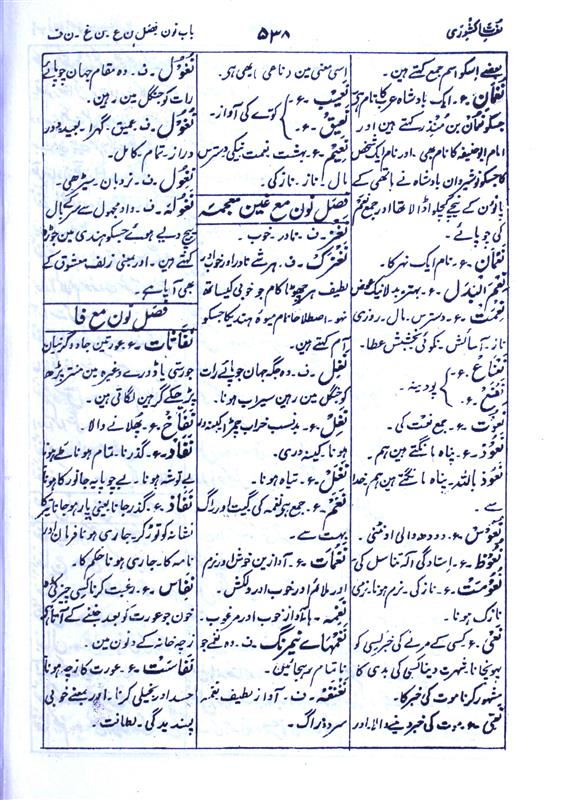 لغات کشوری
۵۳۸
باب نون فصل ن ع - ن غ - ن ف
بعضے اسکو اسم جمع کہتے ہین۔
نُعْمَان۔ ع۔ ایک بادشاہ عرب کا نام ہی
جسکو نعمان بن منذر کہتے ہین اور
امام ابو حنیفہ کا نام بھی۔ اور نام ایک شخص
کا جسکو نوشیروان بادشاہ نے ہاتھی کے
پاؤن کے نیچے کچلوا ڈالا تھا اور جمع نَعَم
کی چوپائے۔
نُعْمَان۔ ع۔ نام ایک نہر کا۔
نِعْمَ البَدَل۔ ع۔ بہتر بدلا نیک عوض
نِعْمَت۔ ع۔ دسترس۔ مال۔ روزی
ناز۔ آسائش۔ نکوئی بخشش عطا۔
نَعْنَاع۔ ع۔
نَعْنَع۔ ع۔
پودینہ۔
نُعُوت۔ ع۔ جمع نعت کی۔
نَعُوذ۔ ع۔ پناہ مانگتے ہین ہم۔
نَعُوذ باللہ۔ پناہ مانگتے ہین ہم خدا
سے۔
نَعُوس۔ ع۔ دودھ والی اونٹنی۔
نُعُوظ۔ ع۔ استادگی آلہ تناسل کی۔
نُعُومَت۔ ع۔ نازکی۔ نرم ہونا۔ نرمی
نازک ہونا۔
نَعْی۔ ع۔ کسی کے مرنے کی خبر کسی کو
پہونچانا۔ شہرت دینا کسی کی بدی کا
مشہور کرنا موت کی خبر کا۔
نَعِی۔ ع۔ موت کی خبر دینے والا۔ اور
اسی معنی مین ناعی بھی ہی۔
نَعِیب۔ ع۔
نَعِیق۔ ع۔
کوے کی آواز۔
نَعِیم۔ ع۔ بہشت۔ نعمت نیکی دسترس
مال۔ ناز۔ نازکی۔
فصل نون مع غین معجمہ
نَغْز۔ ف۔ نادر۔ خوب۔
نَغْزَک۔ ف۔ ہر شے نادر اور خوب اور
لطیف ہر چھوٹا کام جو خوبی کیساتھ
ہو۔ اصطلاحاً نام میوۂ ہند کا جسکو
آم کہتے ہین۔
نَغَل۔ ف۔ وہ جگہ جہان چوپائے رات
کو جنگل مین رہین سیراب ہونا۔
نَغِل۔ ع۔ بدنسب خراب چمڑا کینہ ور
ہونا۔ کینہ دری۔
نَغْل۔ ع۔ تباہ ہونا۔
نَغَم۔ ع۔ جمع ہی نغمہ کی گیت اور راگ
بہت سے۔
نَغَمَات۔ ع۔ آوازین خوش اور نرم
اور ملائم اور خوب اور دلکش۔
نَغْمَہ۔ ع۔ آواز خوب اور مرغوب۔
نغمہاے نیرنگ۔ ف۔ وہ نغمے جو
ناتمام رہجائین۔
نَغْنَغَہ۔ ف۔ آواز لطیف نغمہ
سرود راگ۔
نَغُول۔ ف۔ وہ مقام جہان چوپائے
رات کو جنگل مین رہین۔
نُغُول۔ ف۔ عمیق۔ گہرا۔ بعید دور
دراز۔ تمام کامل۔
نَغُول۔ ف۔ نردبان۔ سیڑھی۔
نُغُولہ۔ ف۔ واو مجہول سے سر کے بال
پیچ دیے ہوئے جسکو ہندی مین جوڑہ
کہتے ہین۔ اور بمعنی زلف معشوق کے
بھی آیا ہے۔
فصل نون مع فا
نَفَّاثَات۔ ع۔ عورتین جادوگرنیان
جو رسی یا ڈورے وغیرہ مین منتر پڑھ
پڑھکے گرہین لگاتی ہین۔
نَفَّاخ۔ ع۔ پھلانے والا۔
نَفَاد۔ ع۔ گذرنا۔ تمام ہونا طے ہونا
بے توشہ ہونا۔ بے چوپایہ جانور کا ہونا
نَفَاذ۔ ع۔ گذرجانا یعنی پار ہوجانا تیر کا
نشانہ کو توڑ کر۔ جاری ہونا فرمان اور
نامہ کا۔ جاری ہونا حکم کا۔
نِفَاس۔ ع۔ رغبت کرنا کسی چیز کی طرف
خون جو عورت کو بعد جننے کے آتا ہی
زچہ خانہ کے دنون مین۔
نَفَاسَت۔ ع۔ عورت کا زچہ ہونا
حسد اور بخیلی کرنا۔ اور بمعنے خوبی
پسندیدگی۔ لطافت۔